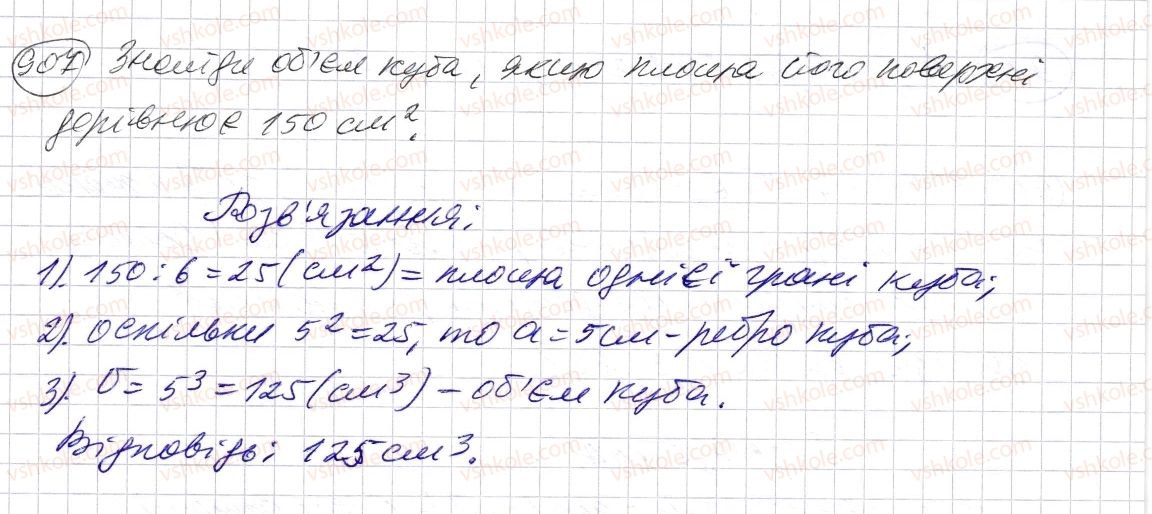 907 Знайди об'єм куба, якщо площа його поверхні
дорівнює 150 см².
Розв'язання:
1). 150 : 6 = 25 (см²) = площа однієї грані куба;
2). оскільки 5² = 25, то a = 5 см - ребро куба;
3). V = 5³ = 125 (см³) - об'єм куба.
Відповідь: 125 см³.
vshkole.com